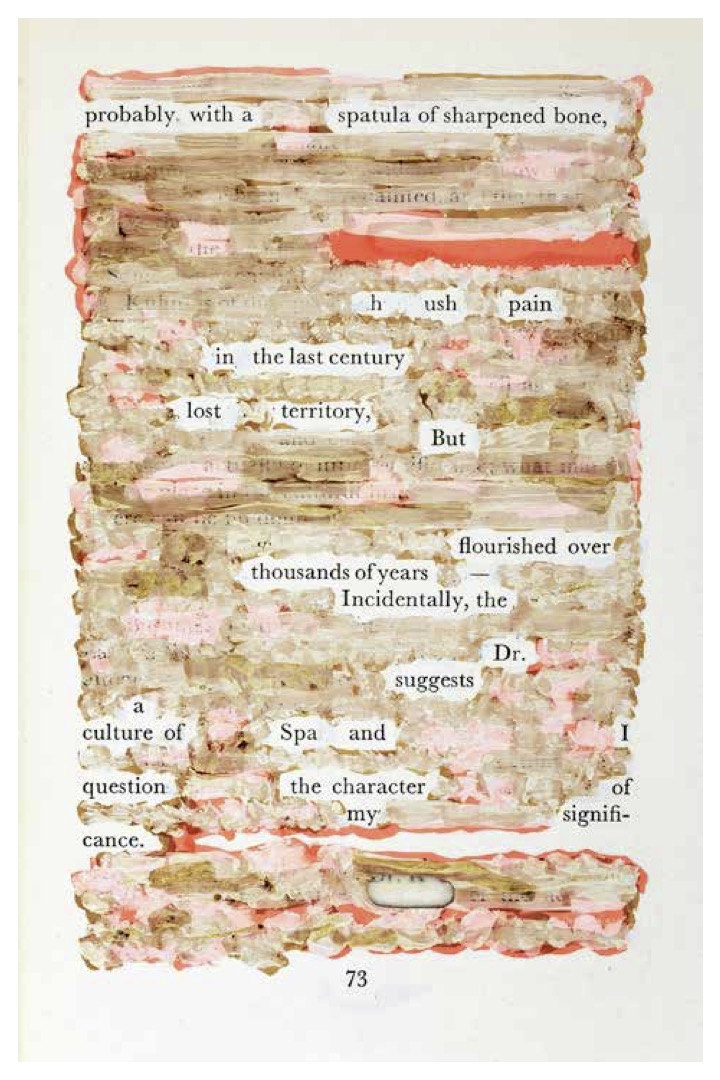 probably with a spatula of sharpened bone,
h ush pain
in the last century
lost territory,
But
flourished over
thousands of years —
Incidentally, the
Dr.
suggests
a
culture of Spa and I
question the character of
my signifi-
cance.
73